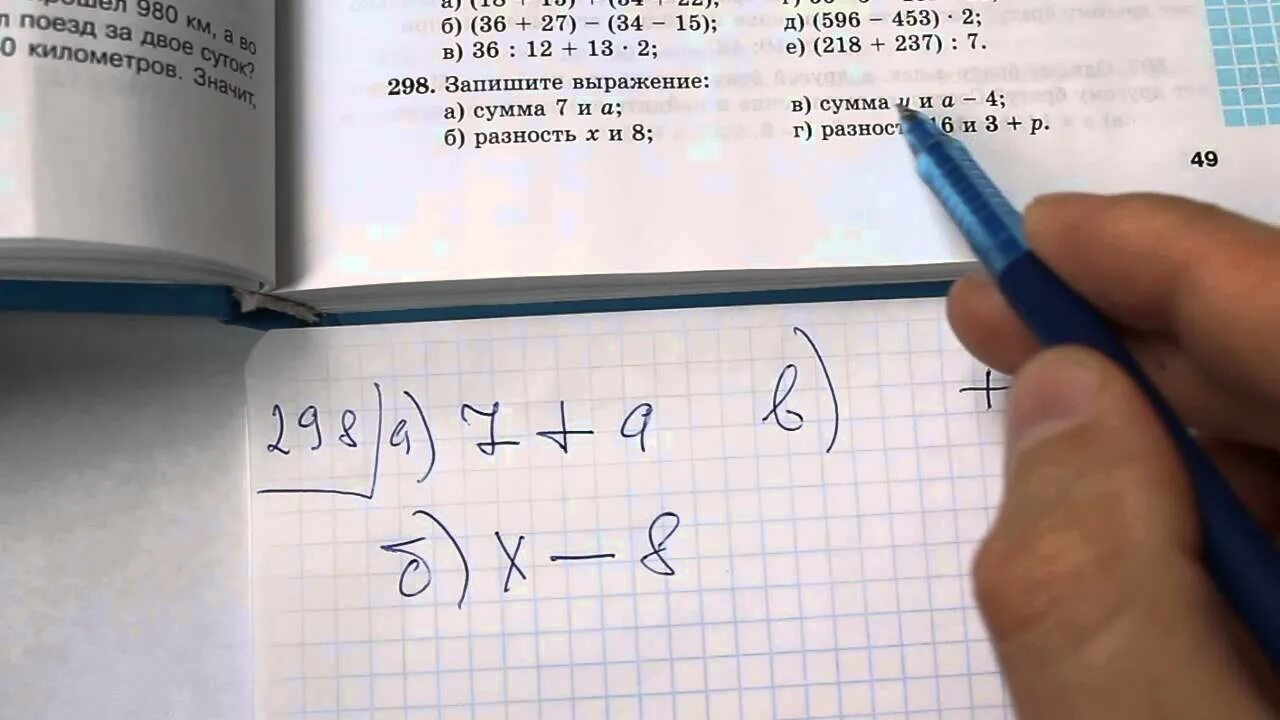 980 км, а во
поезд за двое суток?
0 километров. Значит,
б) (36 + 27) − (34 − 15);
в) 36 : 12 + 13 · 2;
д) (596 − 453) · 2;
е) (218 + 237) : 7.
298. Запишите выражение:
а) сумма 7 и a;
б) разность x и 8;
в) сумма и a − 4;
г) 16 и 3 + p.
49
298 а) 7 + a
б) x − 8
в) +